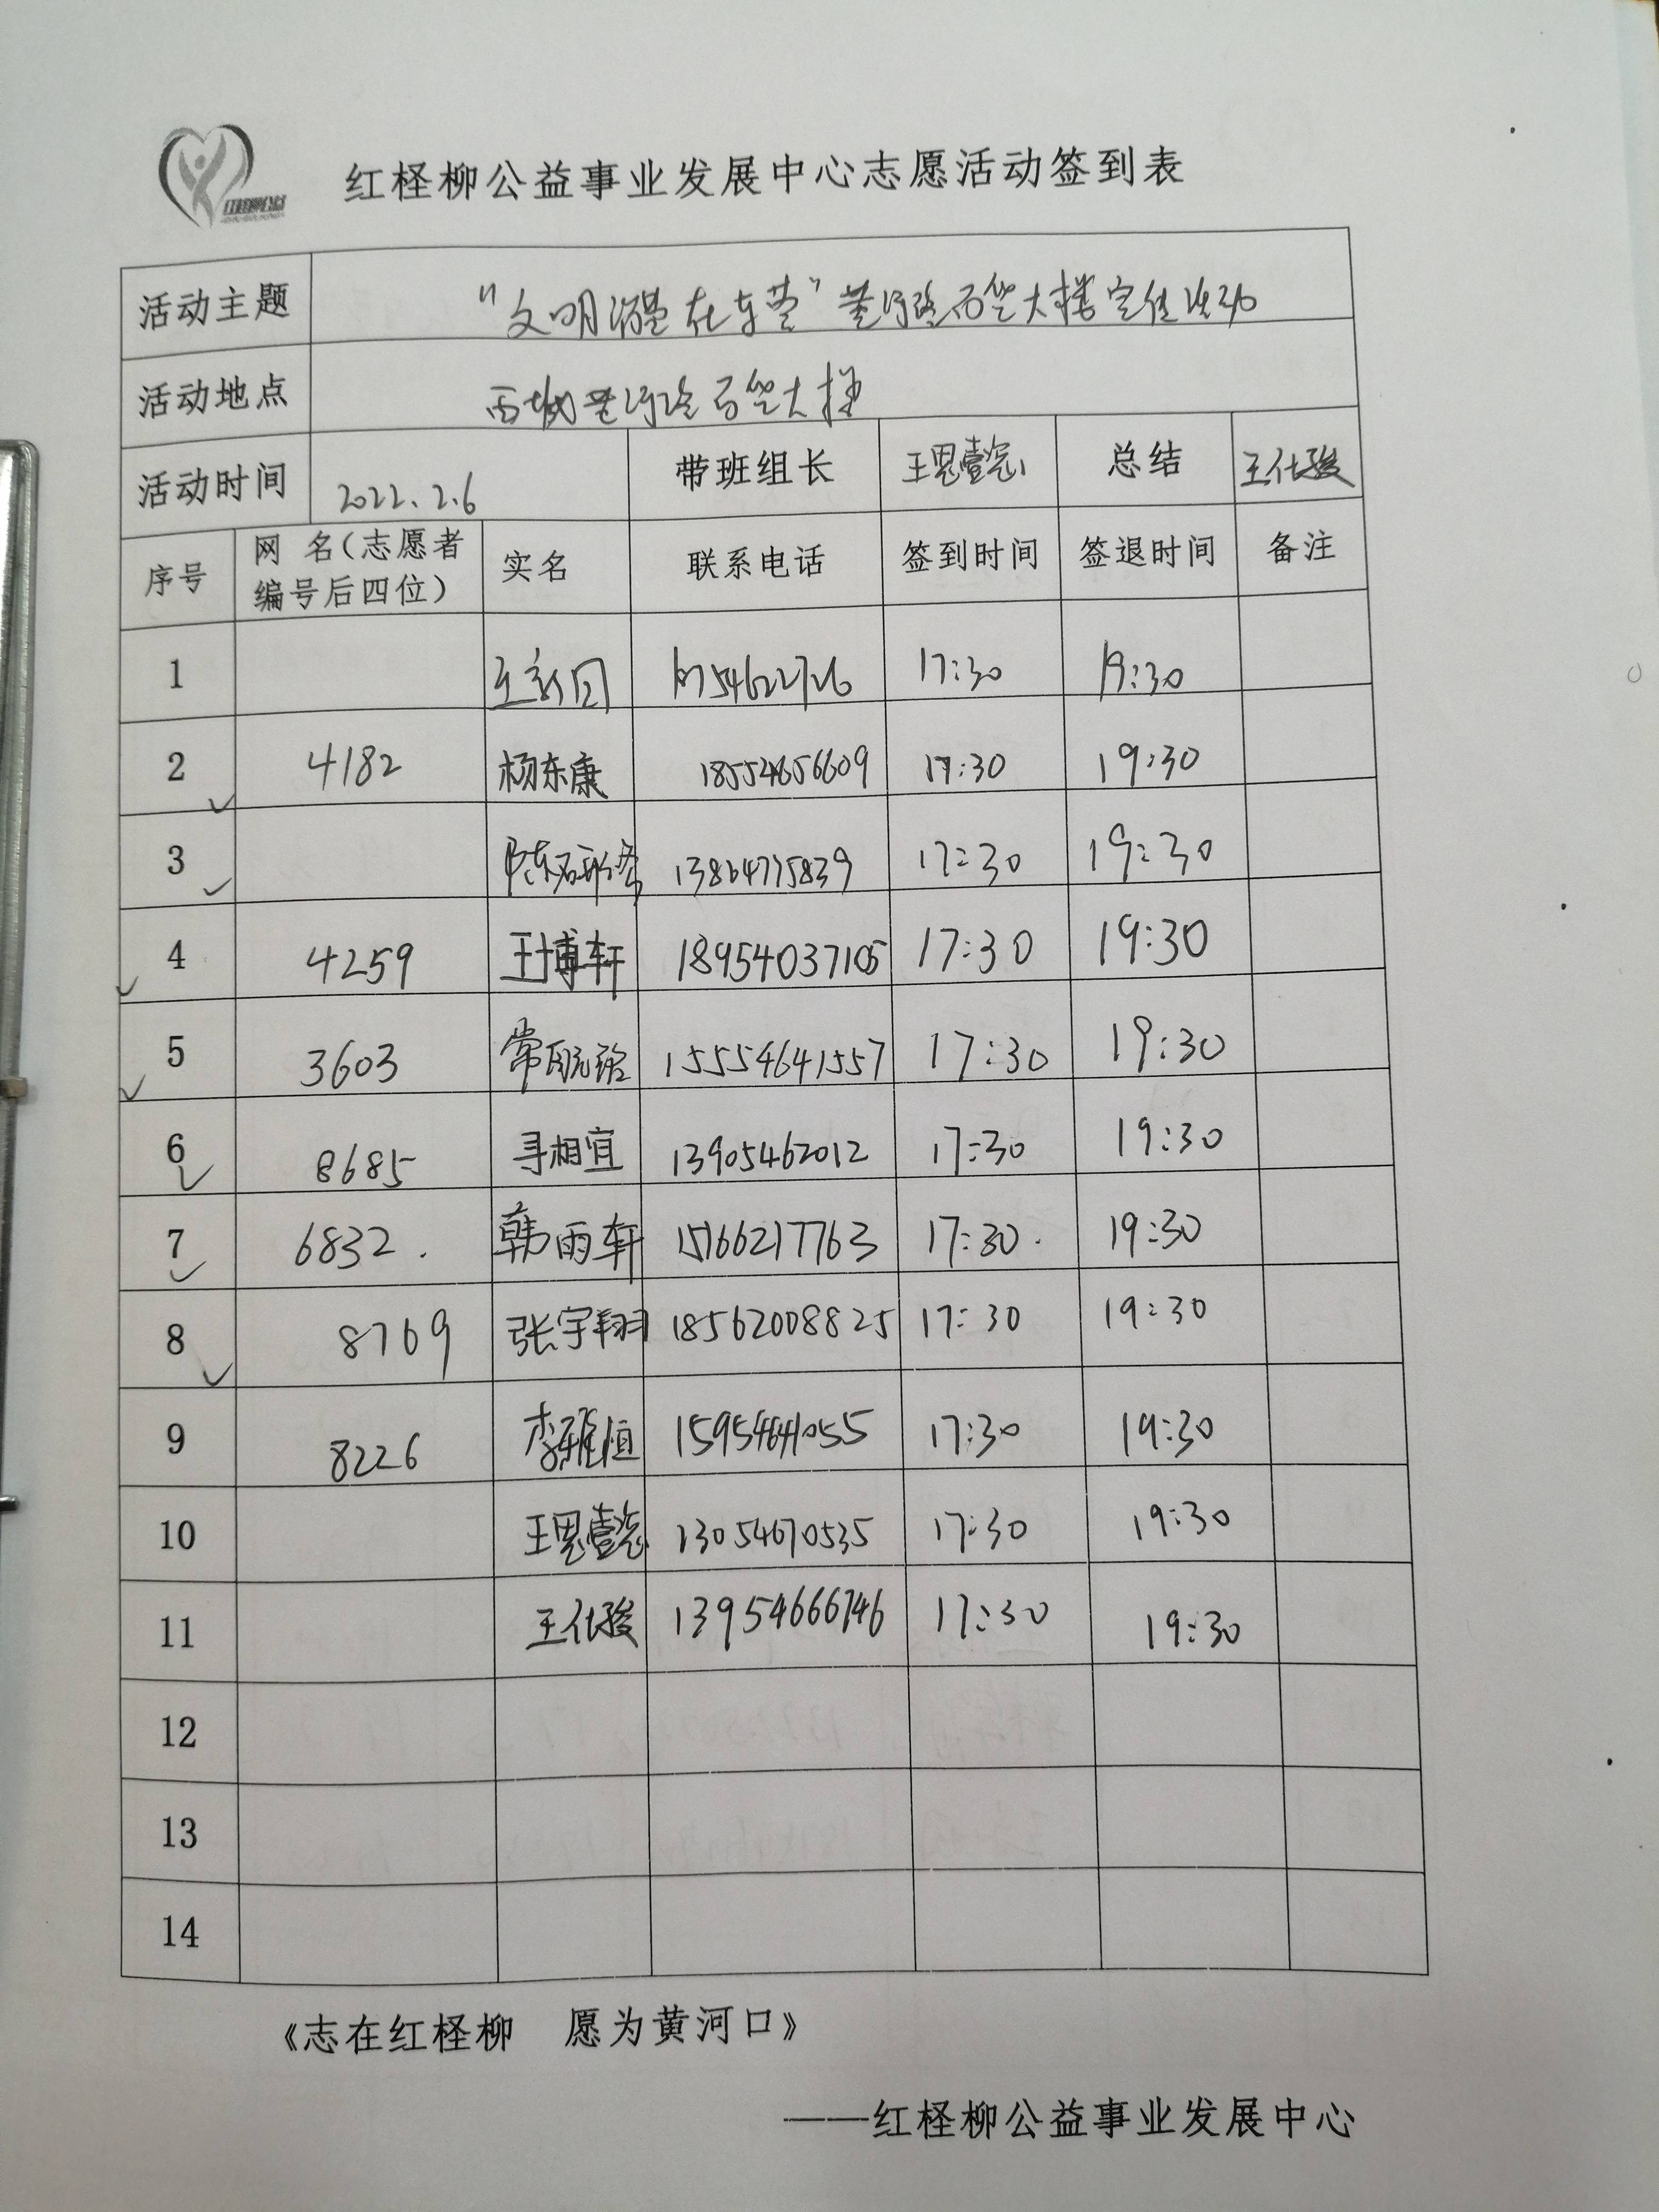 红柽柳公益事业发展中心志愿活动签到表
活动主题 "文明 在东营" 黄河路百货大楼 活动
活动地点 西城黄河路百货大楼
活动时间 2022.2.6 带班组长 王思懿 总结 王化骏
序号 网 名(志愿者编号后四位) 实名 联系电话 签到时间 签退时间 备注
1 17:30 19:30
2 4182 杨东康 18554656609 17:30 19:30
3 13864775839 17:30 19:30
4 4259 王博轩 18954037105 17:30 19:30
5 3603 15554641557 17:30 19:30
6 8685 寻相宜 13905462012 17:30 19:30
7 6832. 韩雨轩 15166217763 17:30. 19:30
8 8769 张宇翔 18562008825 17:30 19:30
9 8226 李雅恒 15954641055 17:30 19:30
10 13054670535 17:30 19:30
11 13954666746 17:30 19:30
12
13
14
《志在红柽柳 愿为黄河口》
——红柽柳公益事业发展中心